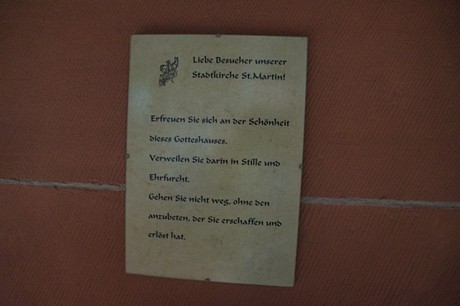 Liebe Besucher unserer
Stadtkirche St. Martin!
Erfreuen Sie sich an der Schönheit
dieses Gotteshauses.
Verweilen Sie darin in Stille und
Ehrfurcht.
Gehen Sie nicht weg, ohne den
anzubeten, der Sie erschaffen und
erlöst hat.